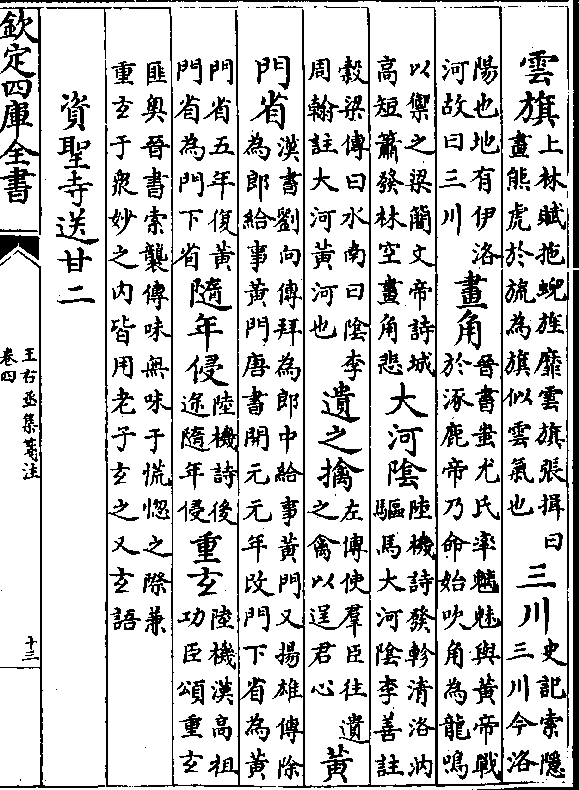 雲旗上林賦拖蜺旌靡雲旗張揖曰
畫熊虎於旒為旗似雲氣也三川史記索隱
三川今洛
陽也地有伊洛
河故曰三川畫角晉書蚩尤氏率魑魅與黃帝戰
於涿鹿帝乃命始吹角為龍鳴
以禦之梁簡文帝詩城
高短簫發林空畫角悲大河陰陸機詩發軫清洛汭
驅馬大河陰李善註
穀梁傳曰水南曰陰李
周翰註大河黃河也遺之擒左傳使羣臣往遺
之禽以逞君心黃
門省漢書劉向傳拜為郎中給事黃門又揚雄傳除
為郎給事黃門唐書開元元年改門下省為黃
門省五年復黃
門省為門下省隨年侵陸機詩後
途隨年侵重玄陸機漢高祖
功臣頌重玄
匪奧晉書索襲傳味無味于慌惚之際兼
重玄于衆妙之內皆用老子玄之又玄語
資聖寺送甘二
欽定四庫全書
王右丞集箋注
卷四
十三